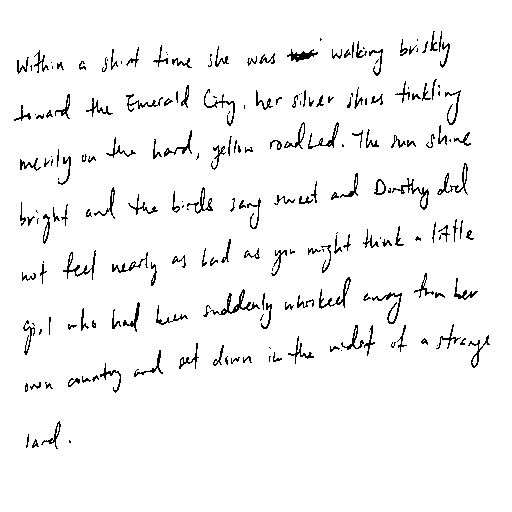 Within a short time she was walking briskly
toward the Emerald City, her silver shoes tinkling
merrily on the hard, yellow roadbed. The sun shine
bright and the birds sang sweet and Dorothy did
not feel nearly as bad as you might think a little
girl who had been suddenly whisked away from her
own country and set down in the midst of a strange
land.